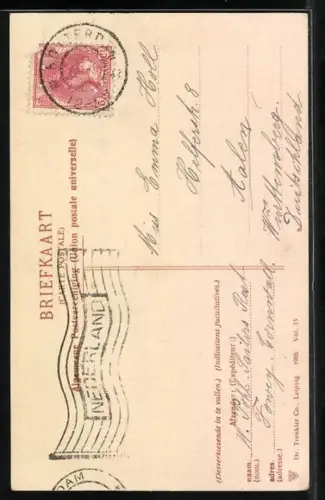 BRIEFKAART
(CARTE POSTALE)
Algemeene Postvereeniging (Union postale universelle)
NEDERLAND
DAM
Miss Emma Holl
Helferstr. 8
Aalen
Württemberg.
Duitschland
(Desverwezende in te vullen.) (Indications facultatives.)
Afzender: (Expéditeur:)
naam
(nom.)
adres
(adresse.)
Fowey, Cornwall.
Dr. Trenkler Co., Leipzig 1906 Vol. 15